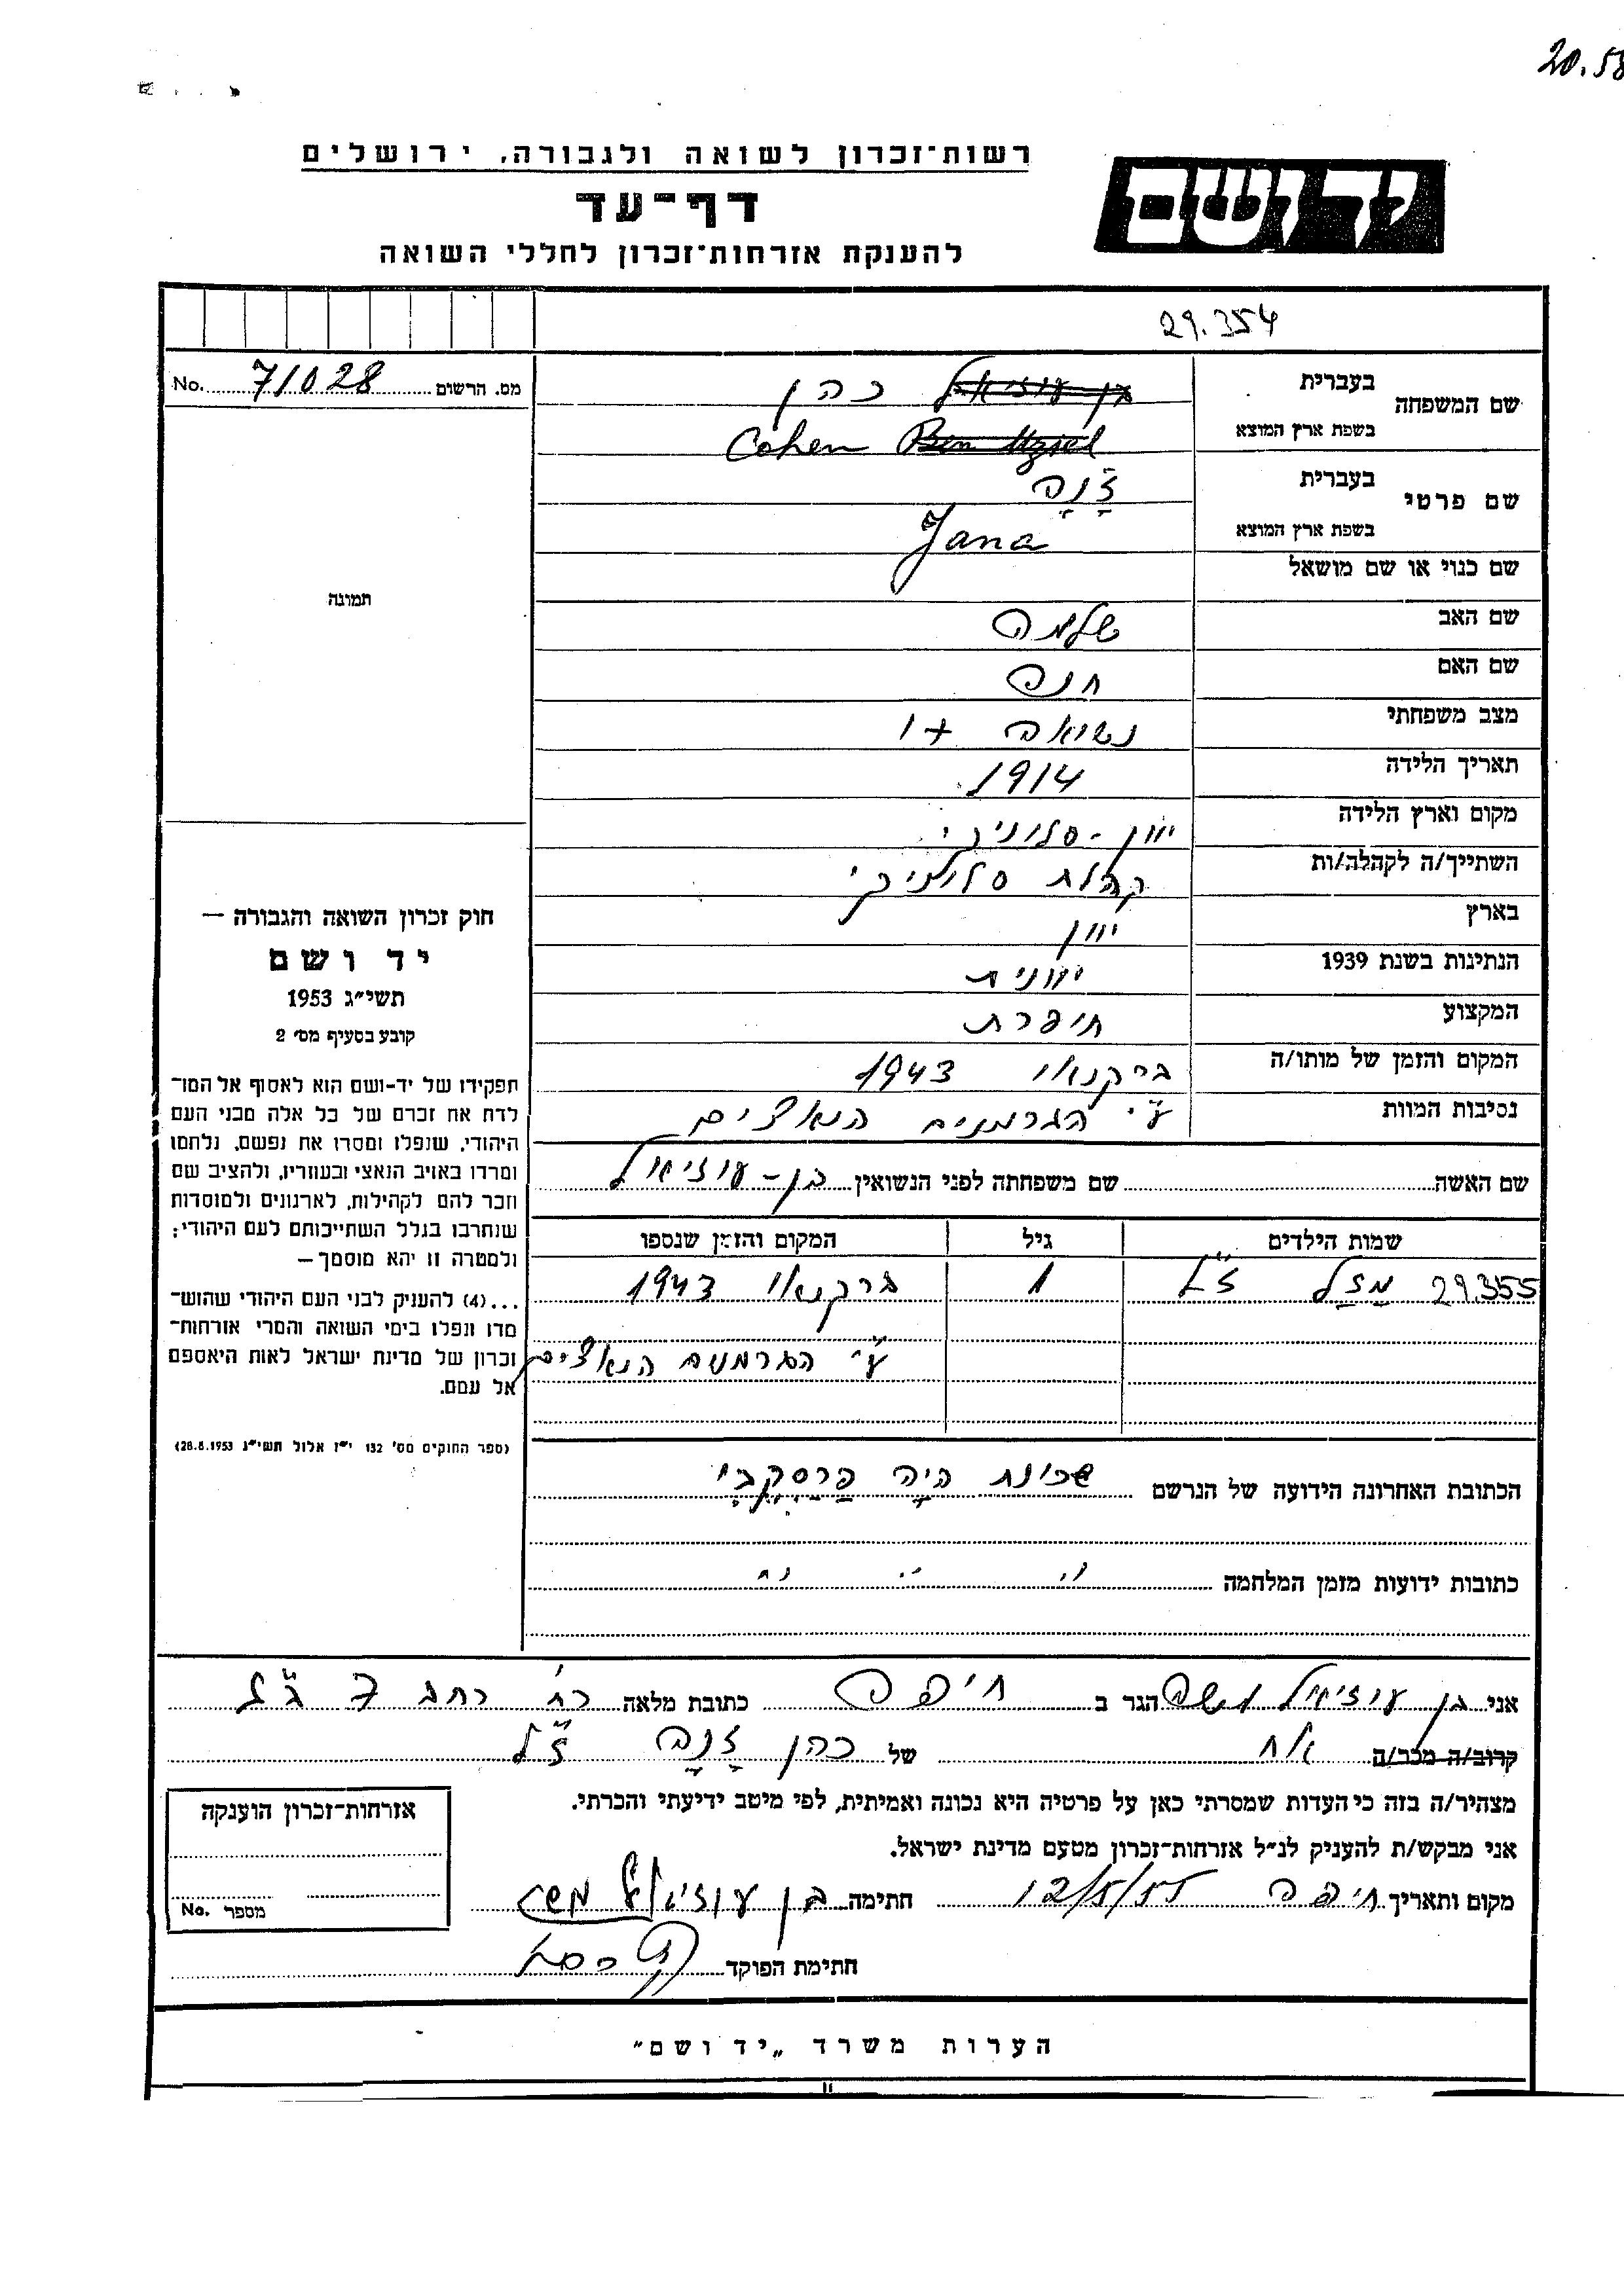 20.58
רשות־זכרון לשואה ולגבורה, ירושלים
יד ושם
דף־עד
להענקת אזרחות־זכרון לחללי השואה
29.354
מס. הרשום 71028 No.
שם המשפחה
בעברית בן עוזיאל כהן
בשפת ארץ המוצא Cohen Ben Uziel
שם פרטי
בעברית זַ'נָה
בשפת ארץ המוצא Jana
שם כנוי או שם מושאל
תמונה
שם האב שלמה
שם האם חנה
מצב משפחתי נשואה + 1
תאריך הלידה 1914
מקום וארץ הלידה יוון - סלוניקי
השתייך/ה לקהלה/ות קהלת סלוניקי
בארץ יוון
הנתינות בשנת 1939 יוונית
המקצוע תופרת
המקום והזמן של מותו/ה בירקנאו 1943
נסיבות המוות ע"י הגרמנים הנאצים
שם האשה שם משפחתה לפני הנשואין בן-עוזיאל
שמות הילדים גיל המקום והזמן שנספו
29.355 מַזַל ז"ל 1 בירקנאו 1943
ע"י הגרמנים הנאצים
חוק זכרון השואה והגבורה —
יד ושם
תשי״ג 1953
קובע בסעיף מס׳ 2
תפקידו של יד-ושם הוא לאסוף אל המו־
לדת את זכרם של כל אלה מבני העם
היהודי, שנפלו ומסרו את נפשם, נלחמו
ומרדו באויב הנאצי ובעוזריו, ולהציב שם
וזכר להם לקהילות, לארגונים ולמוסדות
שנחרבו בגלל השתייכותם לעם היהודי;
ולמטרה זו יהא מוסמך —
...(4) להענק לבני העם היהודי שהוש־
מדו ונפלו בימי השואה והמרי אזרחות־
זכרון של מדינת ישראל לאות היאספם
אל עמם.
(ספר החוקים מס׳ 132 י״ז אלול תשי״ג 28.8.1953)
הכתובת האחרונה הידועה של הנרשם שכונת
כתובות ידועות מזמן המלחמה " " "
אני בן עוזיאל משה הגר ב חיפה כתובת מלאה רח' רחב 7
קרוב/ה מכר/ה אח של כהן זַ'נָה ז"ל
מצהיר/ה בזה כי העדות שמסרתי כאן על פרטיה היא נכונה ואמיתית, לפי מיטב ידיעתי והכרתי.
אני מבקש/ת להעניק לנ״ל אזרחות־זכרון מטעם מדינת ישראל.
מקום ותאריך חיפה 12/5/55 חתימה בן עוזיאל משה
חתימת הפוקד
אזרחות־זכרון הוענקה
מספר No.
הערות משרד „יד ושם״